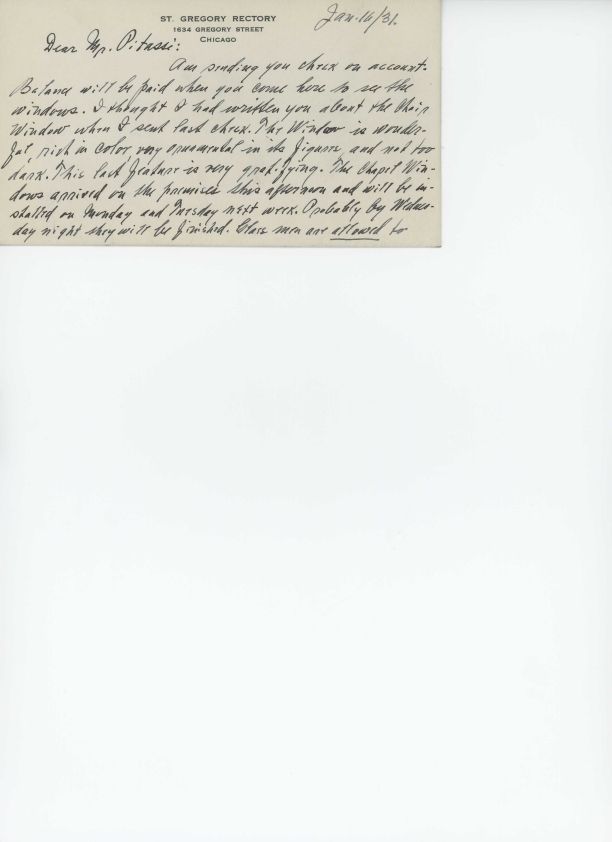 ST. GREGORY RECTORY
1634 GREGORY STREET
CHICAGO
Jan. 16/31.
Dear Mr. Pitassi:
Am sending you check on account.
Balance will be paid when you come here to see the
windows. I thought I had written you about the Choir
Window when I sent last check. The Window is wonder-
ful, rich in color very ornamental in its figures, and not too
dark. This last feature is very gratifying. The Chapel Win-
dows arrived on the premises this afternoon and will be in-
stalled on Monday and Tuesday next week. Probably by Wednes-
day night they will be finished. Glass men are allowed to